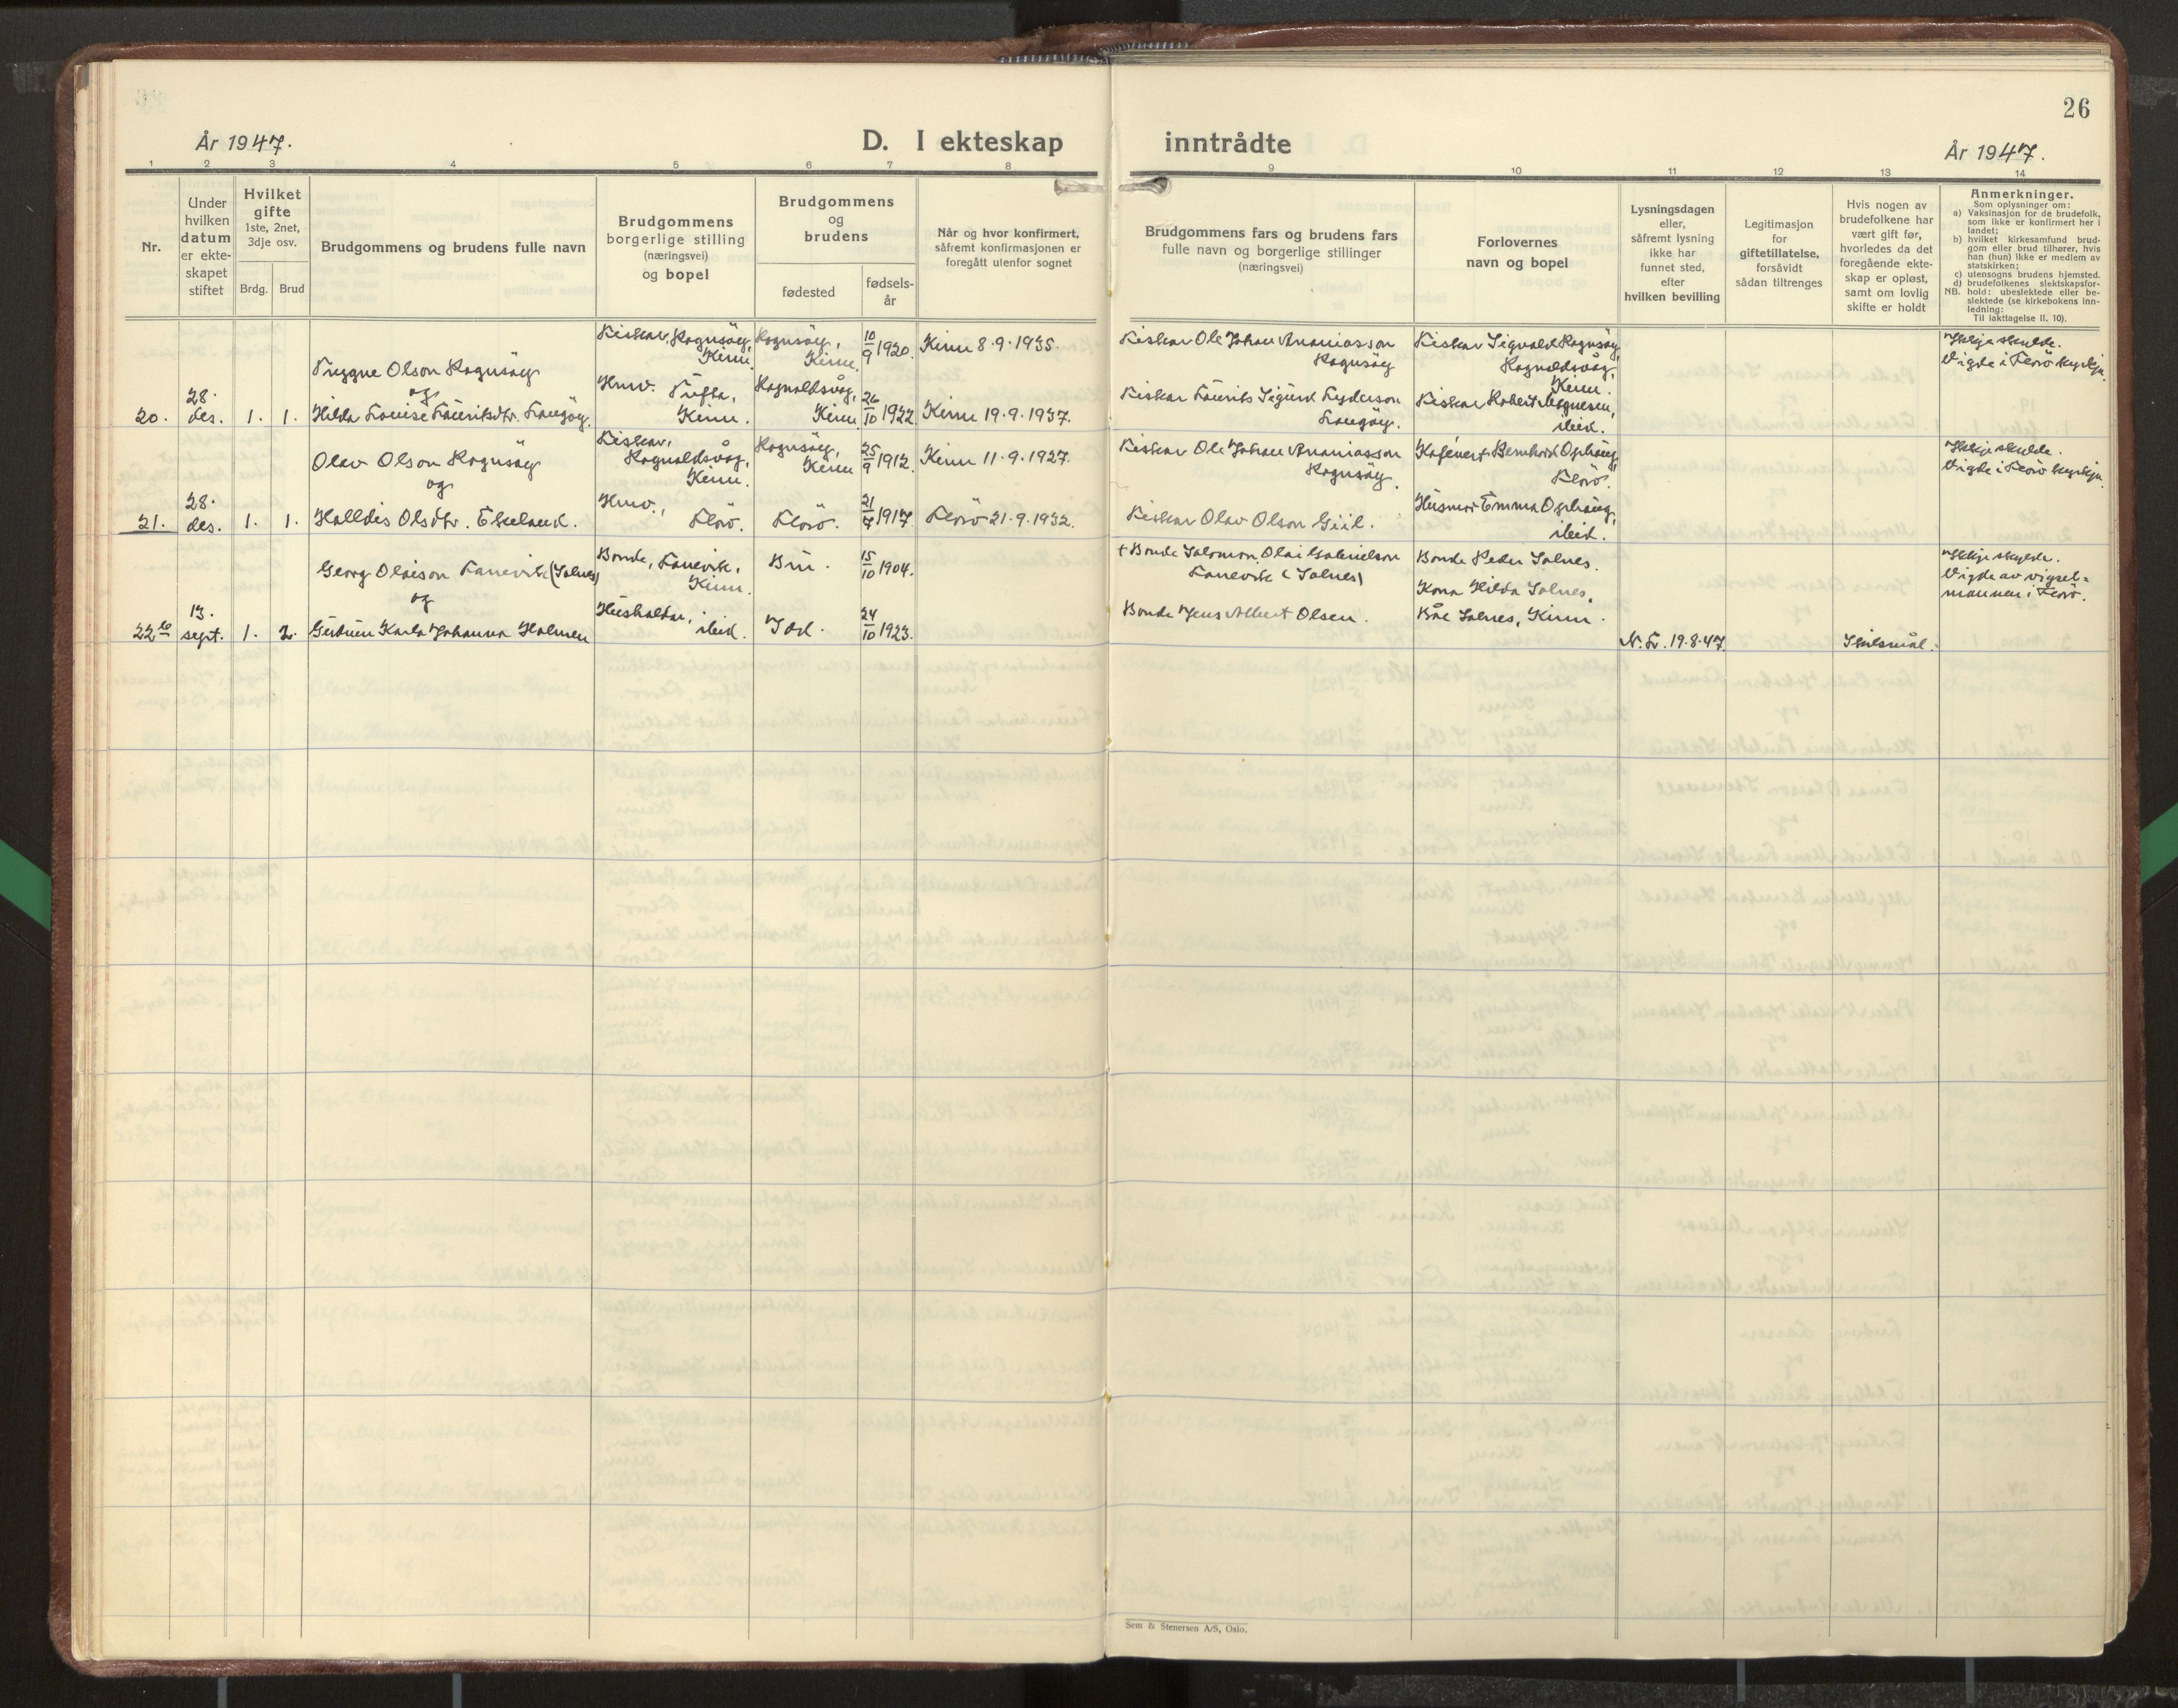 26
År 1947.
D. I ekteskap inntrådte
År 1947.
1 2 3 4 5 6 7 8 9 10 11 12 13 14
Nr.
Under
hvilken
datum
er ekte-
skapet
stiftet
Hvilket
gifte
1ste, 2net,
3dje osv.
Brdg. Brud
Brudgommens og brudens fulle navn
Brudgommens
borgerlige stilling
(næringsvei)
og bopel
Brudgommens
og
brudens
fødested
fødsels-
år
Når og hvor konfirmert,
såfremt konfirmasjonen er
foregått utenfor sognet
Brudgommens fars og brudens fars
fulle navn og borgerlige stillinger
(næringsvei)
Forlovernes
navn og bopel
Lysningsdagen
eller,
såfremt lysning
ikke har
funnet sted,
efter
hvilken bevilling
Legitimasjon
for
giftetillatelse,
forsåvidt
sådan tiltrenges
Hvis nogen av
brudefolkene har
vært gift før,
hvorledes da det
foregående ekte-
skap er opløst,
samt om lovlig
skifte er holdt
Anmerkninger.
Som oplysninger om:
a) Vaksinasjon for de brudefolk,
som ikke er konfirmert her i
landet;
b) hvilket kirkesamfund brud-
gom eller brud tilhører, hvis
han (hun) ikke er medlem av
statskirken;
c) utensogns brudens hjemsted.
d) brudefolkenes slektskapsfor-
NB. hold: ubeslektede eller be-
slektede (se kirkebokens inn-
ledning:
Til iakttagelse II, 10).
20.
28.
des.
1. 1.
Tryggve Olson Rognsøy
og
Hilda Louise Lauritsdtr. Langøy.
Fiskar, Rognsøy,
Kinn.
Husv. Tufta,
Kinn.
Rognsøy,
Kinn.
Rognaldsvåg,
Kinn.
10/9 1920.
26/10 1922.
Kinn 8.9.1935.
Kinn 19.9.1937.
Fiskar Ole Johan Ananiasson
Rognsøy
Fiskar Laurits Sigurd Lyderson
Langøy.
Fiskar Sigvald Rognsøy,
Rognaldsvåg,
Kinn.
Fiskar Robert Magnesen,
ibid.
Ikkje skylde.
Vigde i Florö kyrkja.
21.
28.
des.
1. 1.
Olav Olson Rognsøy
og
Halldis Olsdtr. Eikeland.
Fiskar,
Rognaldsvåg,
Kinn.
Husv.,
Florö.
Rognsøy,
Kinn
Florö.
25/9 1912.
21/7 1917.
Kinn 11.9.1927.
Florö 21.9.1932.
Fiskar Ole Johan Ananiasson
Rognsøy.
Fiskar Olav Olson Giil.
Bernhard Ophaug,
Florö.
Husmor Emma Ophaug,
ibid.
Ikkje skylde.
Vigde i Florö kyrkja.
22 b
13.
sept.
1. 2.
Georg Olaison Lanevik (Solnes)
og
Gudrun Karla Johanna Holmen
Bonde, Lanevik,
Kinn.
Hushaldar,
ibid.
Bru.
Idd.
15/10 1904.
24/10 1923.
+ Bonde Salomon Olai Gabrielson
Lanevik (Solnes)
Bonde Jens Albert Olsen.
Bonde Peder Solnes.
Kona Hilda Solnes.
Båe Solnes, Kinn.
N. L. 19.8.47.
Skilsmål.
Ikkje skylde.
Vigde av vigsel-
mannen i Florö.
Sem & Stenersen A/S, Oslo.